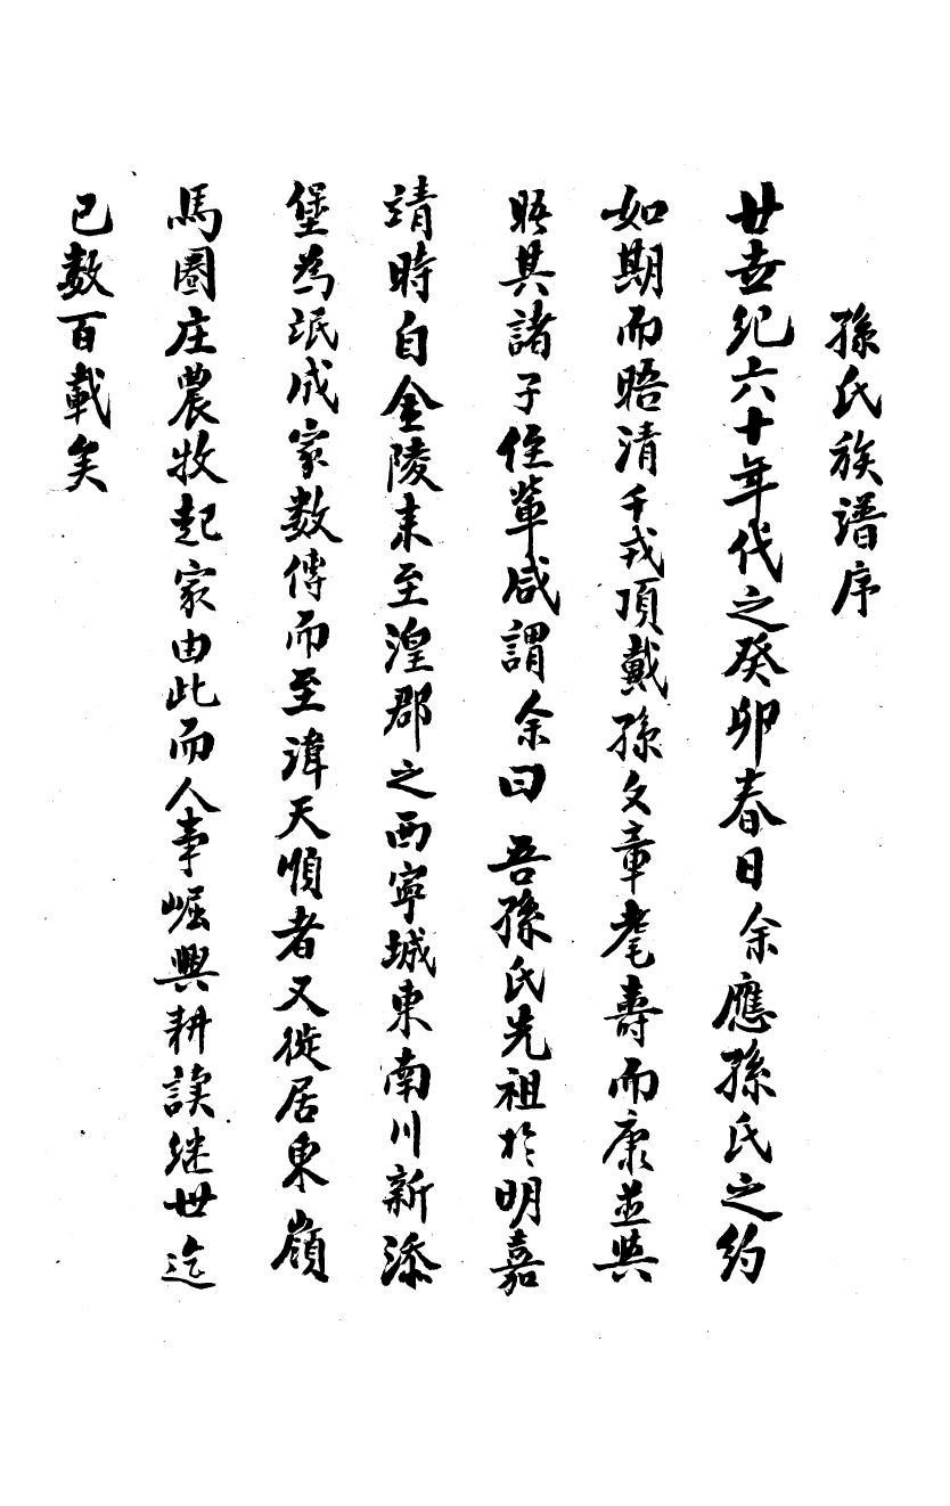 孫氏族譜序
廿世纪六十年代之癸卯春日余應孫氏之约
如期而晤清千戎頂戴孫文章耄壽而康並與
晤其諸子侄輩咸謂余曰吾孫氏先祖於明嘉
靖時自金陵来至湟郡之西寧城東南川新添
堡為氓成家数傳而至諱天順者又徙居東嶺
馬圈庄農牧起家由此而人事崛興耕读继世迄
已数百載矣